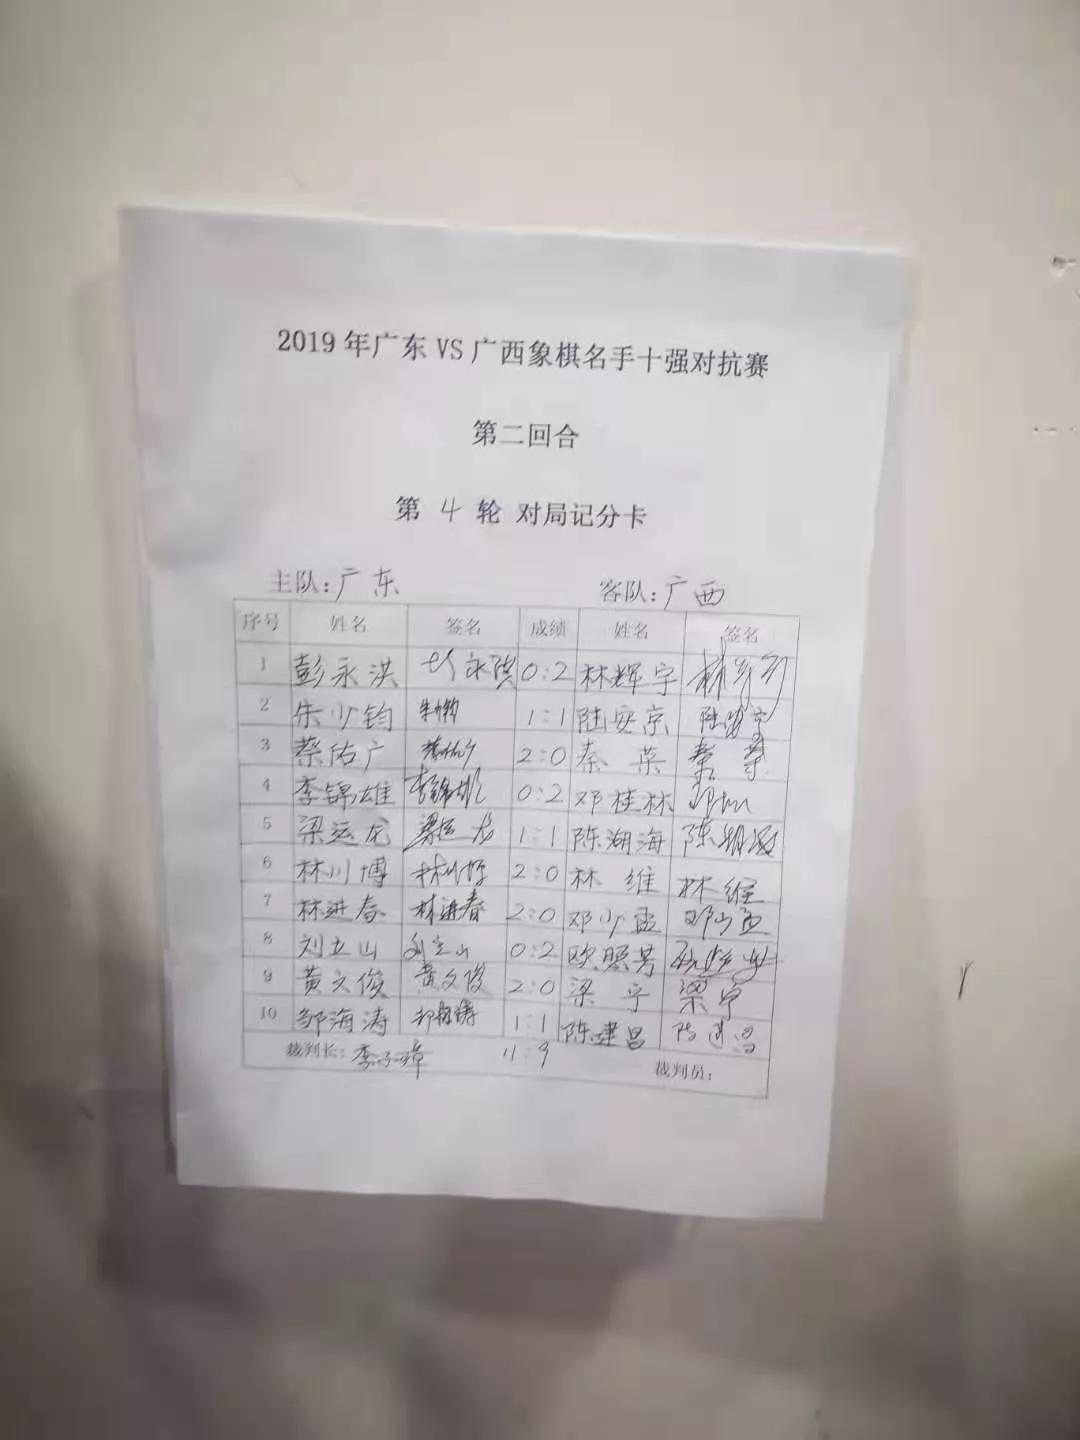 2019年广东VS广西象棋名手十强对抗赛
第二回合
第 4 轮 对局记分卡
主队:广东 客队:广西
序号 姓名 签名 成绩 姓名 签名
1 彭永洪 0:2 林辉宇
2 朱少钧 朱少钧 1:1 陆安京 陆安京
3 蔡佑广 蔡佑广 2:0 秦荣 秦荣
4 李锦雄 李锦雄 0:2 邓桂林
5 梁运龙 梁运龙 1:1 陈湖海 陈湖海
6 林川博 林川博 2:0 林维 林维
7 林进春 林进春 2:0 邓少孟 邓少孟
8 刘立山 刘立山 0:2 欧照芳
9 黄文俊 黄文俊 2:0 梁宁 梁宁
10 邹海涛 邹海涛 1:1 陈建昌 陈建昌
裁判长:李子璋 11:9 裁判员: